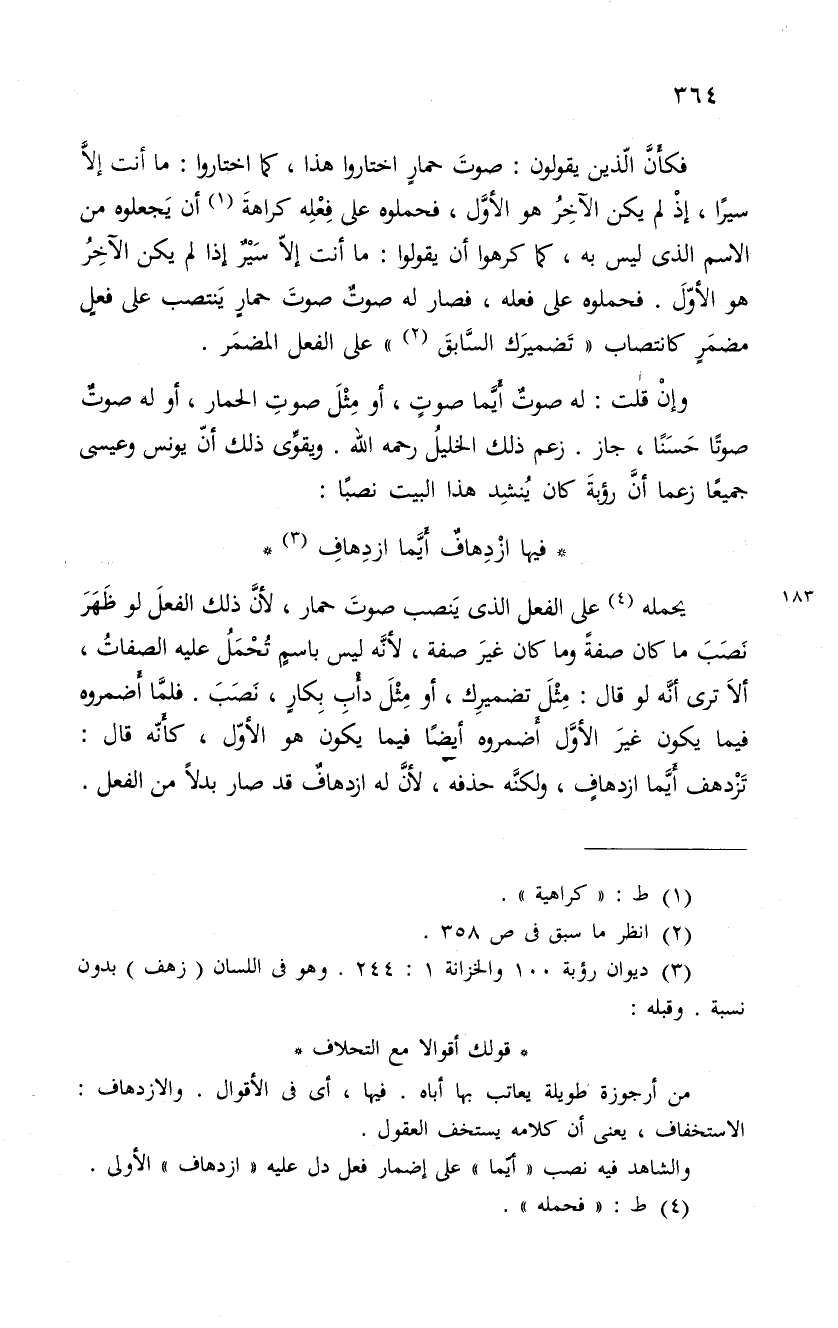 ٣٦٤
فكأَنَّ الّذين يقولون : صوتَ حمارٍ اختاروا هذا ، كما اختاروا : ما أنت إلاَّ
سيرًا ، إذْ لم يكن الآخِرُ هو الأوَّل ، فحملوه على فِعْلِه كراهةَ (١) أن يَجعلوه من
الاسم الذى ليس به ، كما كرهوا أن يقولوا : ما أنت إلاّ سَيْرٌ إذا لم يكن الآخِرُ
هو الأوّلَ . فحملوه على فعله ، فصار له صوتٌ صوتَ حمارٍ يَنتصب على فعلٍ
مضمَرٍ كانتصاب « تَضميرَك السَّابقَ (٢) » على الفعل المضمَر .
وإنْ قلت : له صوتٌ أَيَّما صوتٍ ، أو مِثْلَ صوتِ الحمار ، أو له صوتٌ
صوتًا حَسَنًا ، جاز . زعم ذلك الخليلُ رحمه الله . ويقوِّى ذلك أنّ يونس وعيسى
جميعًا زعما أنَّ رؤبةَ كان يُنشِد هذا البيت نصبًا :
* فيها ازْدِهافٌ أَيَّما ازدِهافِ (٣) *
يحمله (٤) على الفعل الذى يَنصب صوتَ حمار ، لأنَّ ذلك الفعلَ لو ظَهَرَ
١٨٣
نَصَبَ ما كان صفةً وما كان غيرَ صفة ، لأنَّه ليس باسمٍ تُحْمَلُ عليه الصفاتُ ،
ألاَ ترى أنَّه لو قال : مِثْلَ تضميرِك ، أو مِثْلَ دأْبِ بِكارٍ ، نَصَبَ . فلمَّا أَضمروه
فيما يكون غيرَ الأوَّل أَضمروه أيضًا فيما يكون هو الأوّل ، كأَنّه قال :
تَزْدهف أَيَّما ازدهافٍ ، ولكنَّه حذفه ، لأنَّ له ازدهافٌ قد صار بدلاً من الفعل .
(١) ط : « كراهية » .
(٢) انظر ما سبق فى ص ٣٥٨ .
(٣) ديوان رؤبة ١٠٠ والخزانة ١ : ٢٤٤ . وهو فى اللسان ( زهف ) بدون
نسبة . وقبله :
* قولك أقوالا مع التحلاف *
من أرجوزة طويلة يعاتب بها أباه . فيها ، أى فى الأقوال . والازدهاف :
الاستخفاف ، يعنى أن كلامه يستخف العقول .
والشاهد فيه نصب « أيّما » على إضمار فعل دل عليه « ازدهاف » الأولى .
(٤) ط : « فحمله » .